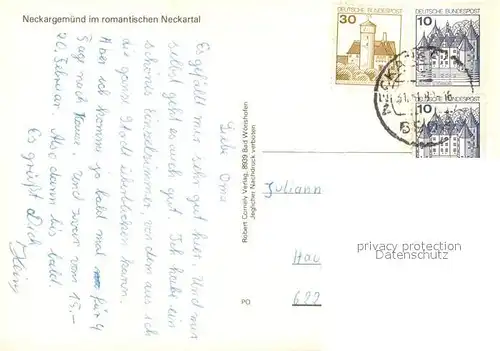 Neckargemünd im romantischen Neckartal
Liebe Oma
Es gefällt mir sehr gut hier. Und mir
selbst geht es auch gut. Ich habe ein
schönes Einzelzimmer, von dem aus ich
die ganze Stadt überblicken kann.
Aber ich komme ja bald mal für 4
Tage nach Hause. Und zwar vom 15.-
20. Februar. Also dann bis bald.
Es grüßt Dich
Heinz
Robert Cornely Verlag, 8939 Bad Wörishofen
Jeglicher Nachdruck verboten
PO
DEUTSCHE BUNDESPOST
30
DEUTSCHE BUNDESPOST
10
DEUTSCHE BUNDESPOST
10
Juliann
Hau
622
privacy protection
Datenschutz